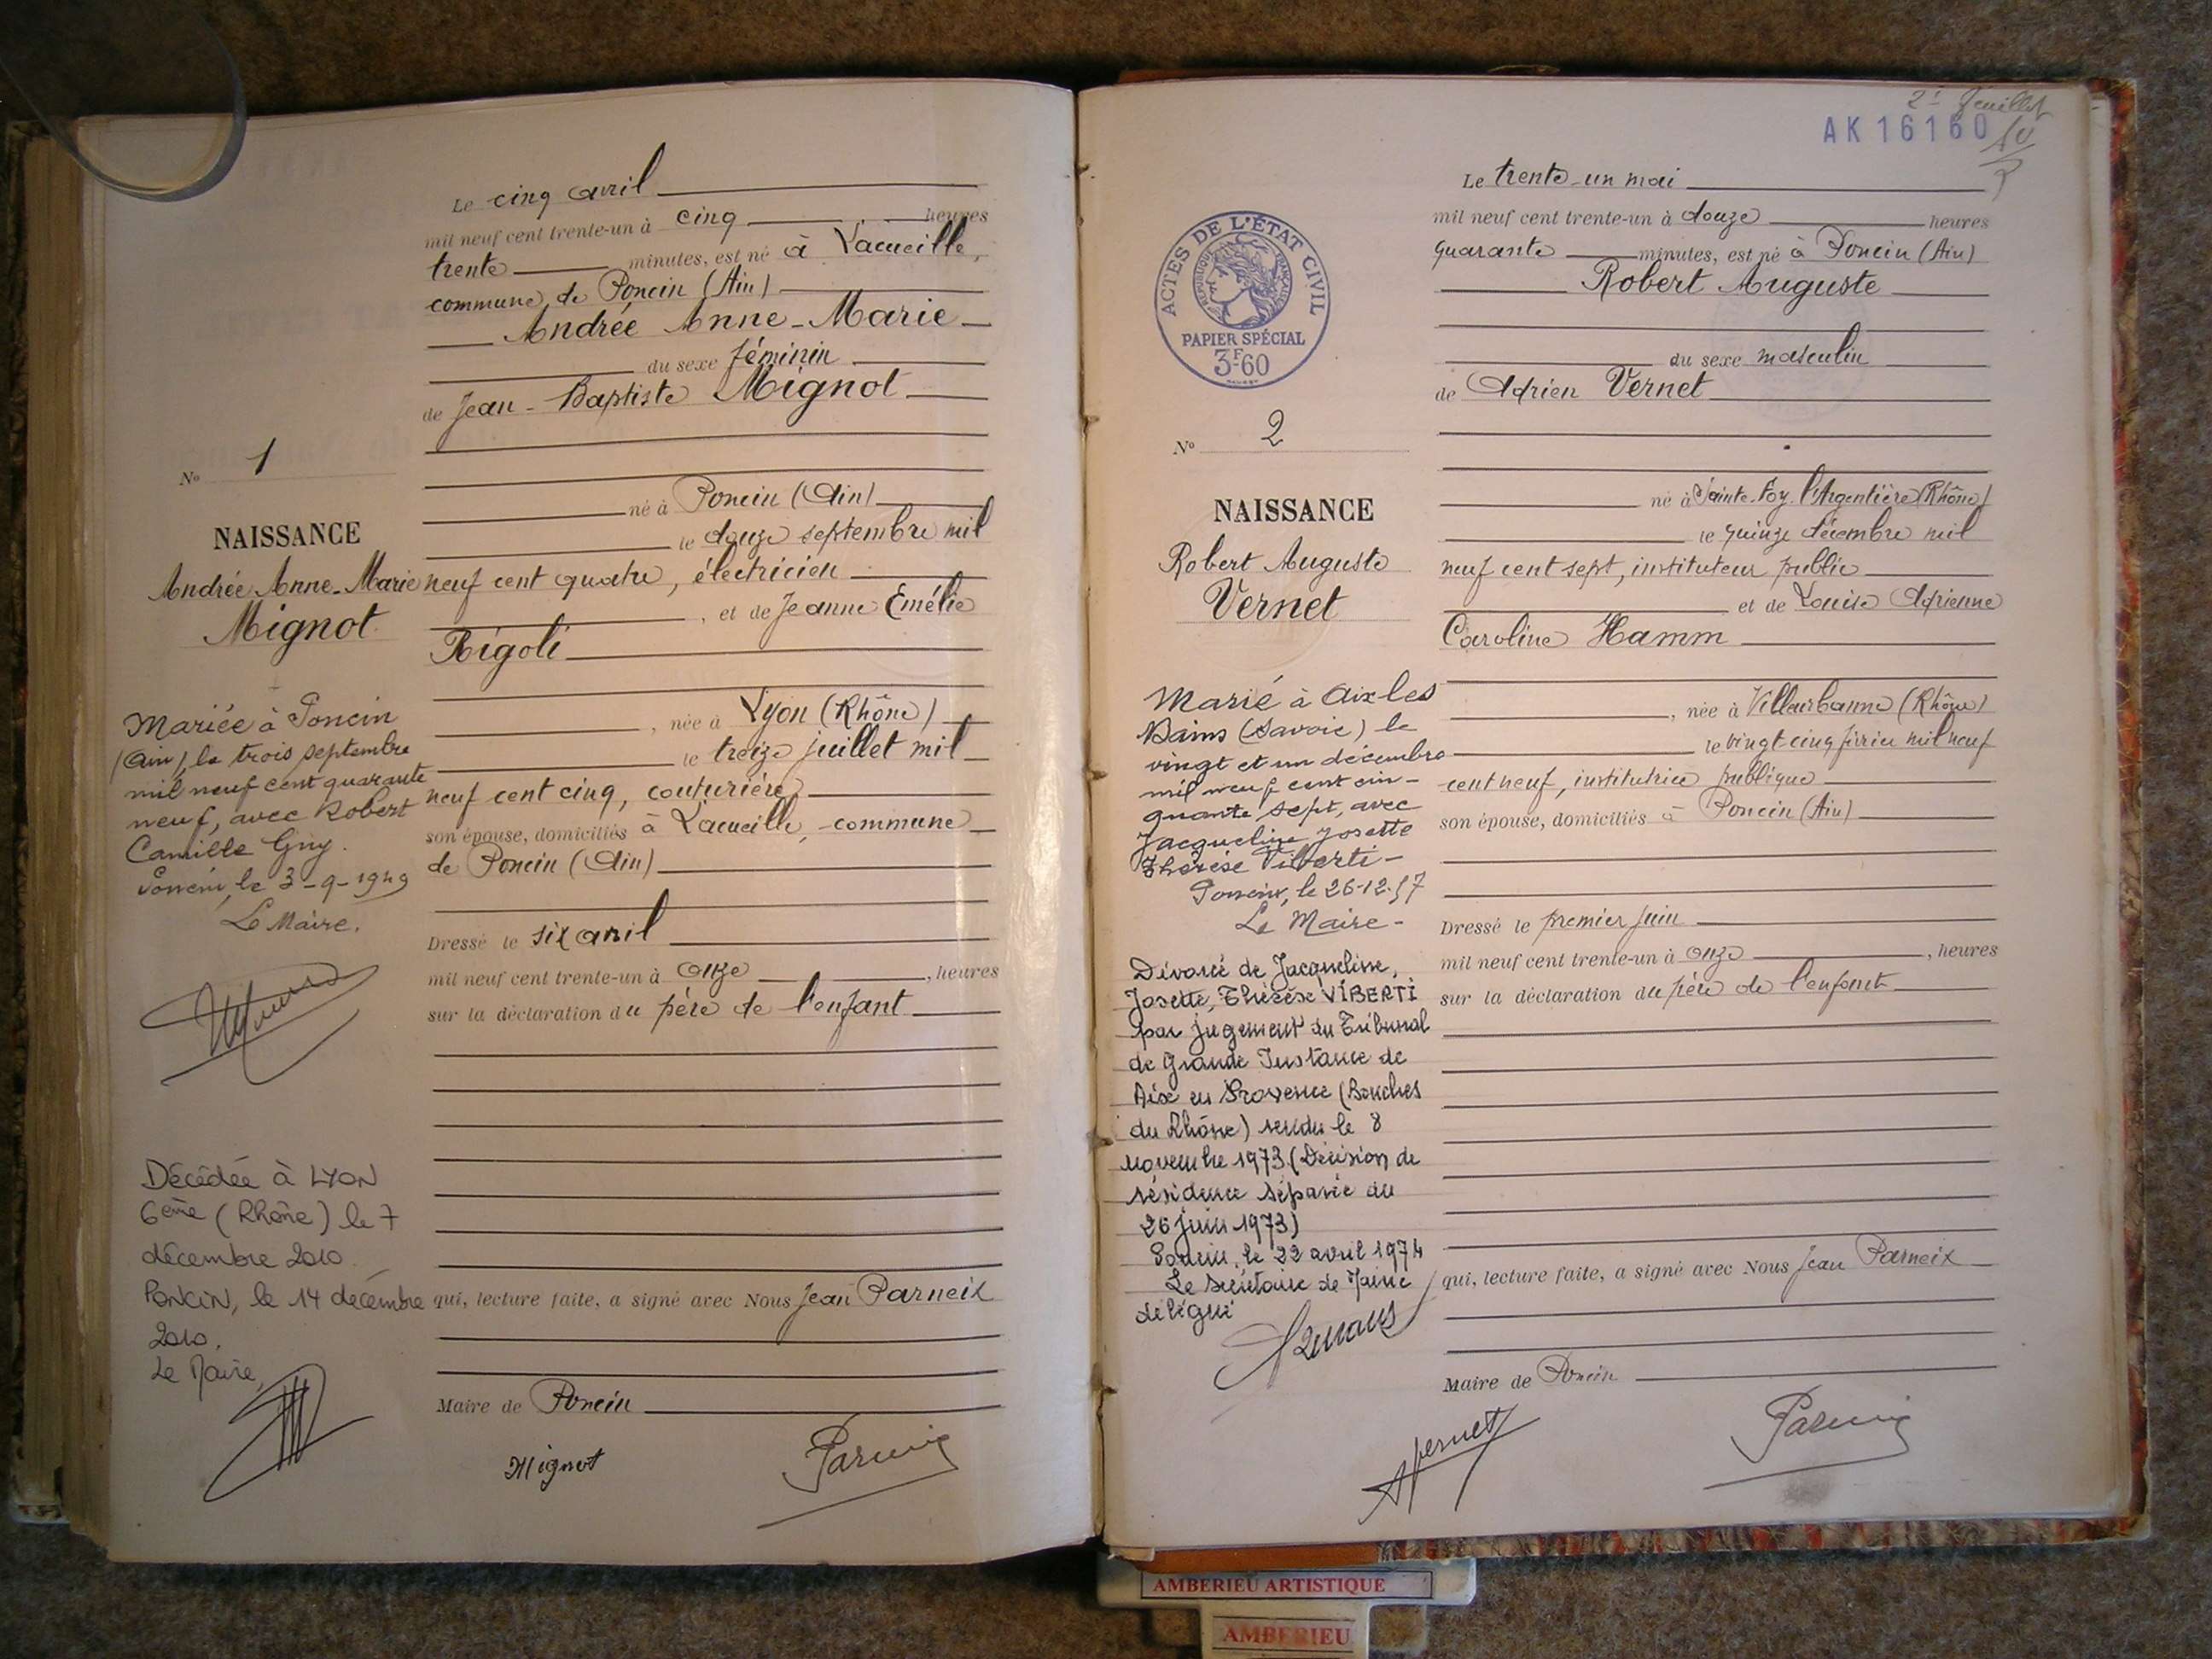 Le cinq avril
mil neuf cent trente-un à cinq heures
trente minutes, est né à Lacueille,
commune de Poncin (Ain)
Andrée Anne-Marie
du sexe féminin
de Jean-Baptiste Mignot
né à Poncin (Ain)
le douze septembre mil
neuf cent quatre, électricien
, et de Jeanne Emélie
Rigoli
, née à Lyon (Rhône)
le treize juillet mil
neuf cent cinq, couturière,
son épouse, domiciliés à Lacueille, commune
de Poncin (Ain)
Dressé le six avril
mil neuf cent trente-un à onze , heures
sur la déclaration du père de l'enfant
qui, lecture faite, a signé avec Nous Jean Parneix
Maire de Poncin
Mignot
Parneix
No 1
NAISSANCE
Andrée Anne-Marie
Mignot
Mariée à Poncin
(Ain), le trois septembre
mil neuf cent quarante
neuf, avec Robert
Camille Guy.
Poncin, le 3-9-1949
Le Maire.
Décédée à LYON
6ème (Rhône) le 7
décembre 2010.
PONCIN, le 14 décembre
2010.
Le Maire,
2è feuillet
AK 16160
Le trente-un mai
mil neuf cent trente-un à douze heures
quarante minutes, est né à Poncin (Ain)
Robert Auguste
du sexe masculin
de Adrien Vernet
né à Sainte-Foy l'Argentière (Rhône)
le quinze décembre mil
neuf cent sept, instituteur public
et de Louise Adrienne
Caroline Hamm
, née à Villeurbanne (Rhône)
le vingt-cinq février mil neuf
cent neuf, institutrice publique
son épouse, domiciliés à Poncin (Ain)
Dressé le premier juin
mil neuf cent trente-un à onze , heures
sur la déclaration du père de l'enfant
qui, lecture faite, a signé avec Nous Jean Parneix
Maire de Poncin
Vernet
Parneix
ACTES DE L'ÉTAT CIVIL
RÉPUBLIQUE FRANÇAISE
PAPIER SPÉCIAL
3F60
No 2
NAISSANCE
Robert Auguste
Vernet
Marié à Aix les
Bains (Savoie) le
vingt et un décembre
mil neuf cent cin-
quante sept, avec
Jacqueline Josette
Thérèse Viberti-
Poncin, le 26-12-57
Le Maire-
Divorcé de Jacqueline,
Josette, Thérèse VIBERTI
par jugement du Tribunal
de Grande Instance de
Aix en Provence (Bouches
du Rhône) rendu le 8
novembre 1973 (Décision de
résidence séparée du
26 juin 1973)
Poncin, le 22 avril 1974
Le Secrétaire de Mairie
délégué
AMBERIEU ARTISTIQUE
AMBERIEU